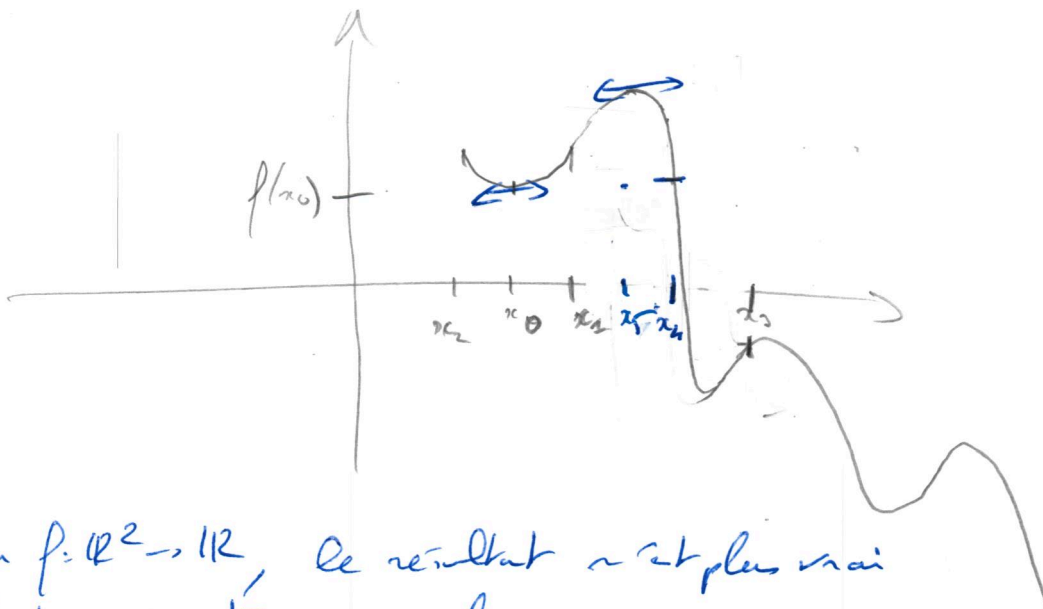 f(x₀)
x₂ x₀ x₁ x₅ x₄ x₃
f: ℝ² → ℝ, le résultat n'est plus vrai